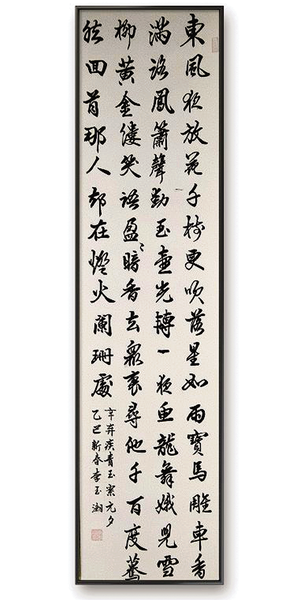 東風夜放花千樹更吹落星如雨寶馬雕車香
滿路鳳簫聲動玉壺光轉一夜魚龍舞娥兒雪
柳黃金縷笑語盈〻暗香去衆裏尋他千百度驀
然回首那人却在燈火闌珊處
辛弃疾青玉案元夕
乙巳新春李玉湘